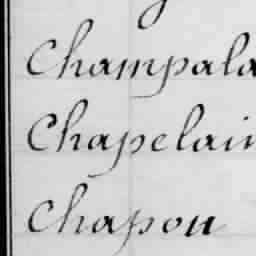 Champala
Chapelain
Chapou